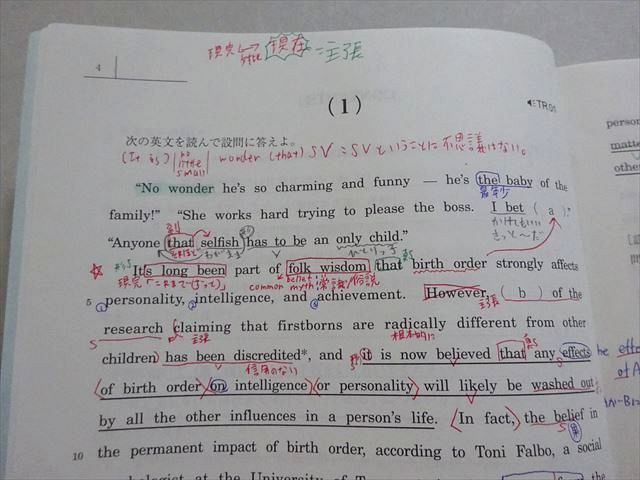 4
現完 ⇔ 現在 = 主張
(1)
TR.01
次の英文を読んで設問に答えよ。
(It is) no little small wonder (that) SV = SVということに不思議はない。
"No wonder he's so charming and funny — he's the baby of the
最年少
family!" "She works hard trying to please the boss. I bet ( a )."
かけてもいい
きっと〜だ
"Anyone that selfish has to be an only child."
ひとりっ子
It's long been part of folk wisdom that birth order strongly affects
common belief myth: 常識/俗説
5 personality, intelligence, and achievement. However, ( b ) of the
主張
research claiming that firstborns are radically different from other
主張
根本的に
children has been discredited*, and it is now believed that any effects
信用のない
of birth order on intelligence or personality will likely be washed out
by all the other influences in a person's life. In fact, the belief in
10 the permanent impact of birth order, according to Toni Falbo, a social
at the University of
person
matte
othe